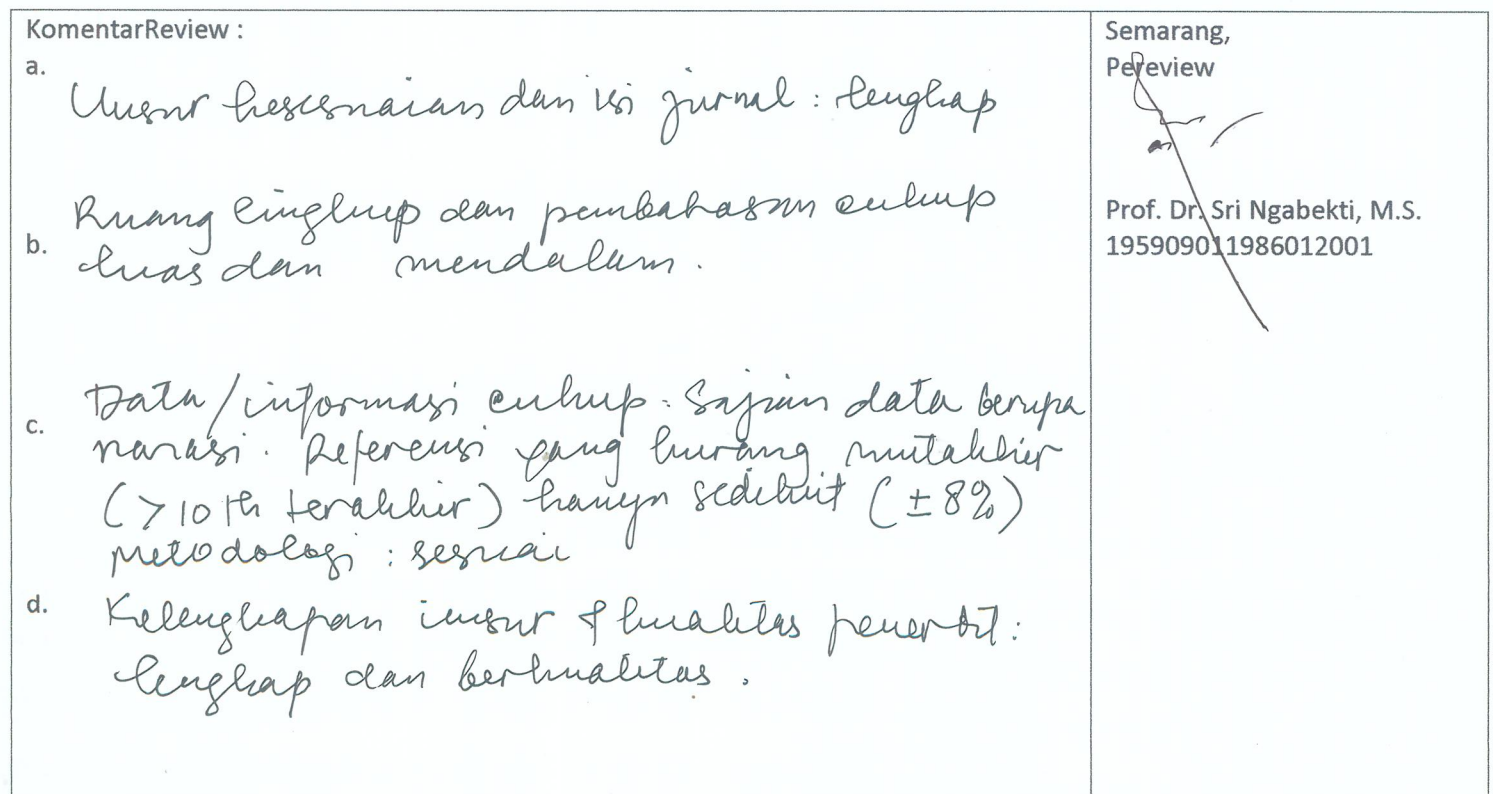 KomentarReview :
a.
Unsur kesesuaian dan isi jurnal : lengkap
b.
Ruang lingkup dan pembahasan cukup
luas dan mendalam.
c.
Data/informasi cukup. Sajian data berupa
narasi. Referensi yang kurang mutakhir
(>10 th terakhir) hanya sedikit (±8%)
Metodologi : sesuai
d.
Kelengkapan unsur & kualitas penerbit:
lengkap dan berkualitas.
Semarang,
Pereview
Prof. Dr. Sri Ngabekti, M.S.
195909011986012001